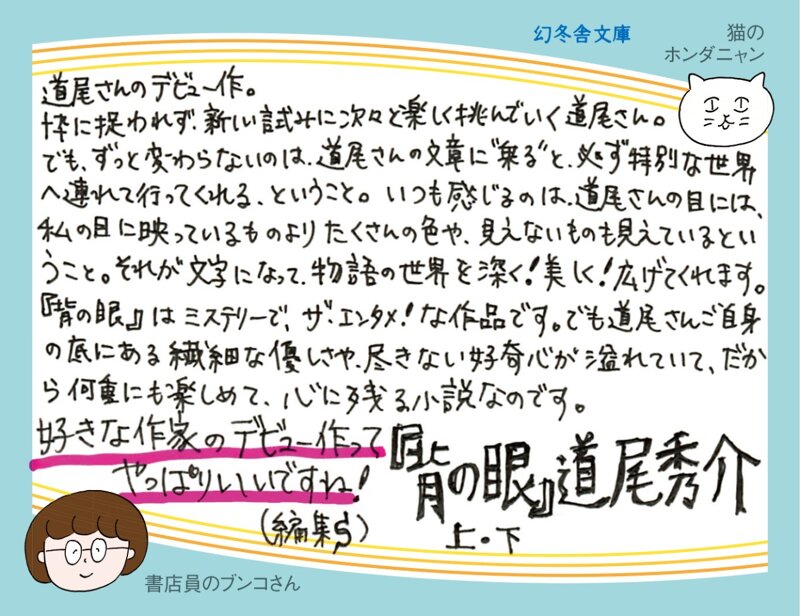 幻冬舎文庫
猫の
ホンダニャン
道尾さんのデビュー作。
枠に捉われず、新しい試みに次々と楽しく挑んでいく道尾さん。
でも、ずっと変わらないのは、道尾さんの文章に“乗る”と、必ず特別な世界
へ連れて行ってくれる、ということ。いつも感じるのは、道尾さんの目には、
私の目に映っているものよりたくさんの色や、見えないものも見えているとい
うこと。それが文字になって、物語の世界を深く!美しく!広げてくれます。
『背の眼』はミステリーで、ザ・エンタメ!な作品です。でも道尾さんご自身
の底にある繊細な優しさや、尽きない好奇心が溢れていて、だか
ら何重にも楽しめて、心に残る小説なのです。
好きな作家のデビュー作って
やっぱりいいですね!
(編集S)
『背の眼』道尾秀介
上・下
書店員のブンコさん